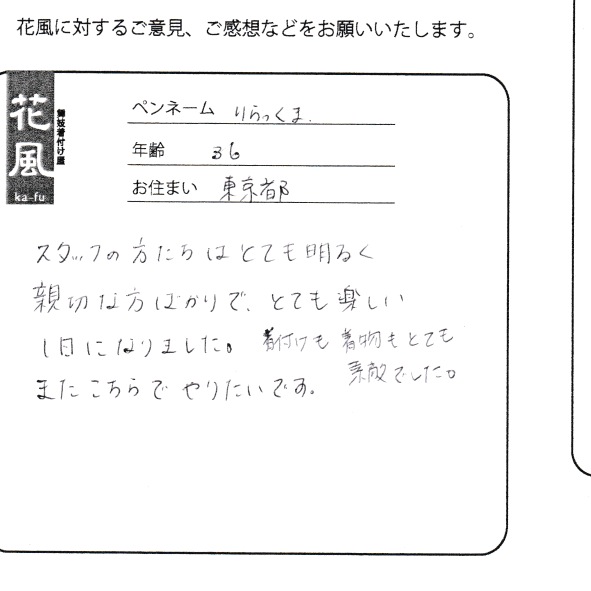 花風に対するご意見、ご感想などをお願いいたします。
花風
舞妓着付け屋
ka-fu
ペンネーム りらっくま.
年齢 36
お住まい 東京都
スタッフの方たちはとても明るく
親切な方ばかりで、とても楽しい
1日になりました。着付けも着物もとても
素敵でした。
またこちらでやりたいです。